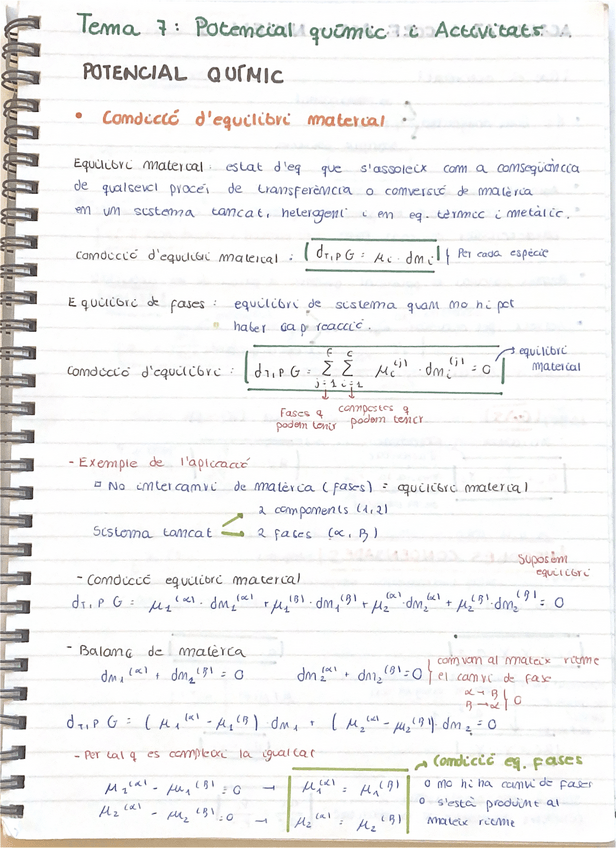 Tema 7: Potencial químic i Activitats.
POTENCIAL QUÍMIC
• Condicció d'equilibri material
Equilibri material: estat d'eq que s'assoleix com a conseqüència
de qualsevol procés de transferència o conversió de matèria
en un sistema tancat, heterogeni i en eq. tèrmic i metàlic.
Condicció d'equilibri material: d_{T,P} G = μ_i · dn_i } Per cada espècie
Equilibri de fases: equilibri de sistema quan no hi pot
haber cap reacció.
Condicció d'equilibri: d_{T,P} G = Σ_{j=1}^{F} Σ_{i=1}^{C} μ_i^{(j)} · dn_i^{(j)} = 0 → equilibri
material
Fases q compostos q
podem tenir podem tenir
- Exemple de l'aplicació
▫ No intercanvi de matèria (fases) = equilibri material
2 components (1,2)
Sistema tancat 2 fases (α, β)
Suposem
equilibri
- Condicció equilibri material
d_{T,P} G = μ_1^{(α)} · dn_1^{(α)} + μ_1^{(β)} · dn_1^{(β)} + μ_2^{(α)} · dn_2^{(α)} + μ_2^{(β)} · dn_2^{(β)} = 0
- Balanç de matèria
dn_1^{(α)} + dn_1^{(β)} = 0 dn_2^{(α)} + dn_2^{(β)} = 0 } canvan al mateix ritme
el canvi de fase
α → β
β → α } 0
d_{T,P} G = (μ_1^{(α)} - μ_1^{(β)}) · dn_1 + (μ_2^{(α)} - μ_2^{(β)}) · dn_2 = 0
- Per tal q es compleixi la igualtat
→ Condició eq. fases
μ_1^{(α)} - μ_1^{(β)} = 0 → μ_1^{(α)} = μ_1^{(β)} o no hi ha canvi de fases
μ_2^{(α)} - μ_2^{(β)} = 0 → μ_2^{(α)} = μ_2^{(β)} o s'està produint al
mateix ritme